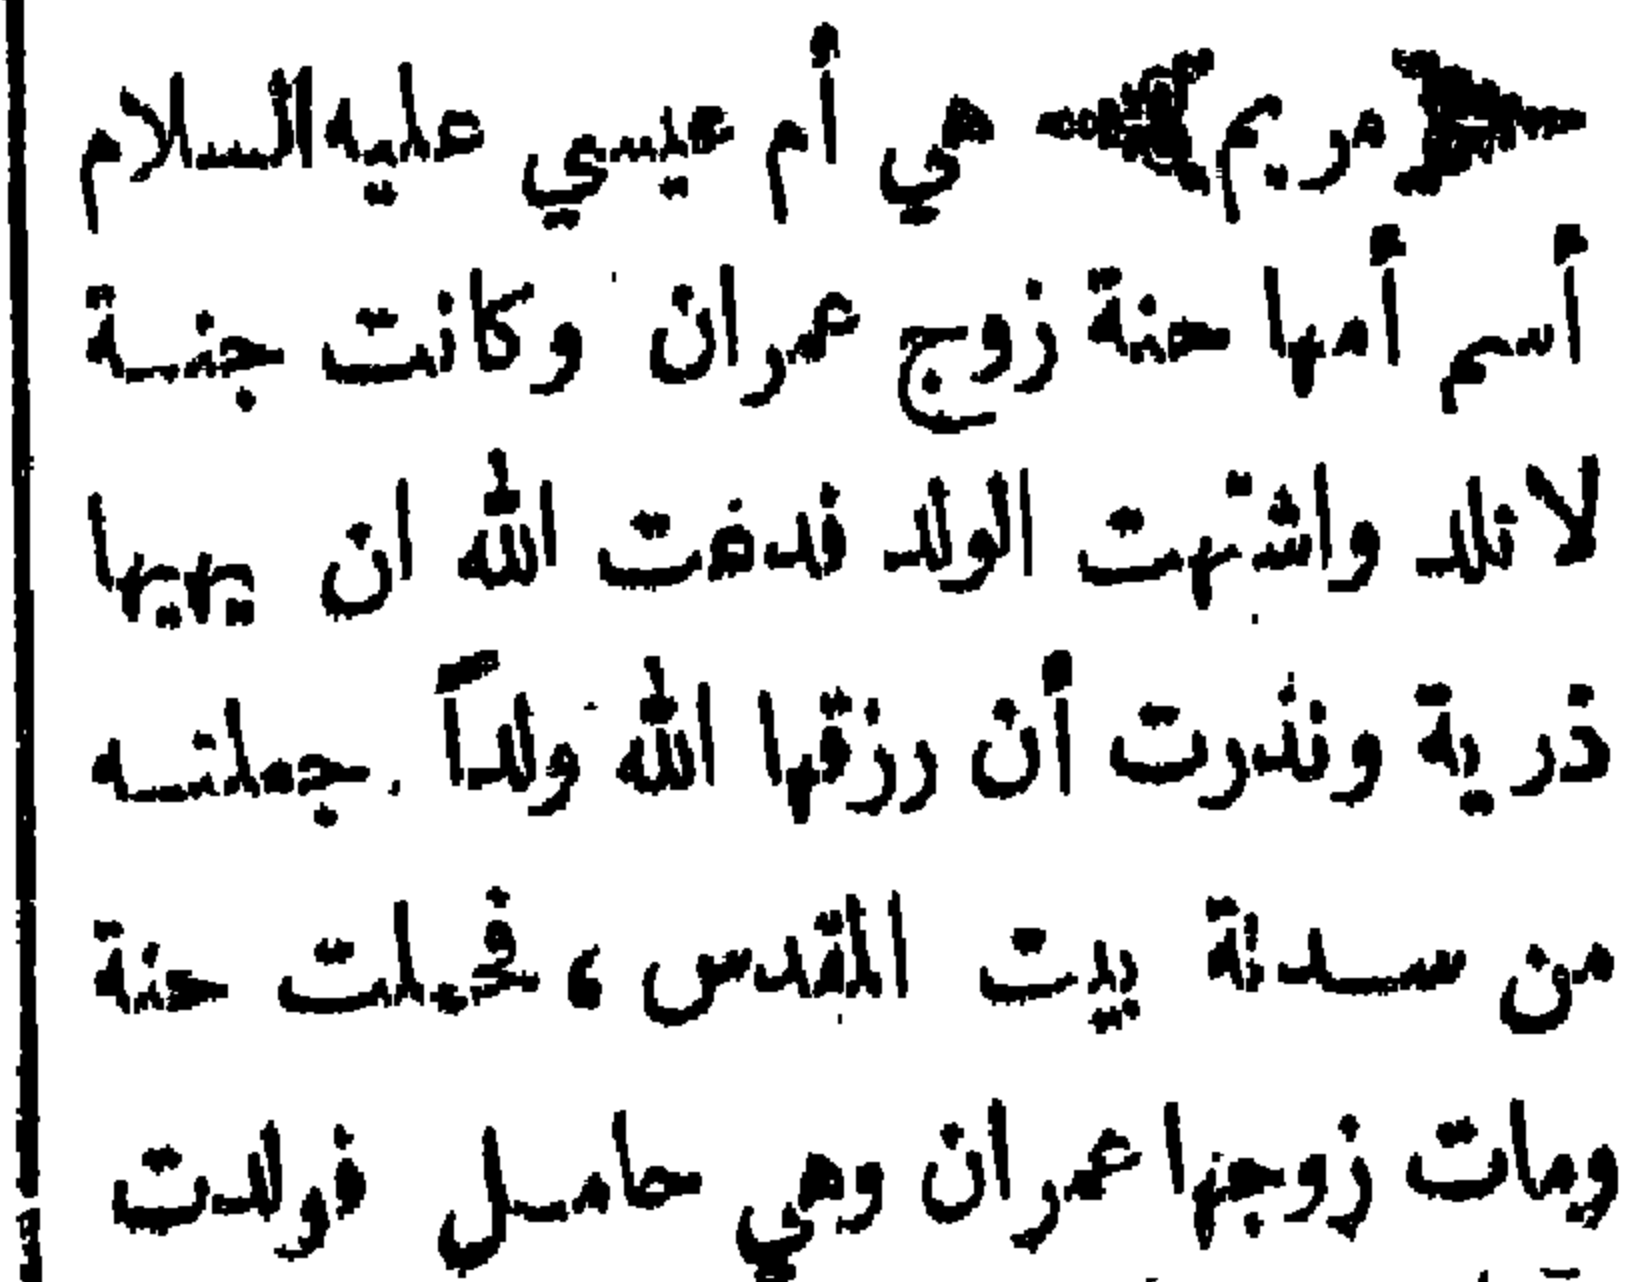 ﴿مريم﴾ هي أم عيسي عليه السلام
أسم أمها حنة زوج عمران وكانت جنسة
لا تلد واشتهت الولد فدعت الله ان يهبها
ذرية ونذرت أن رزقها الله ولداً جعلته
من سدنة بيت المقدس، فحملت حنة
ومات زوجها عمران وهي حامل فولدت